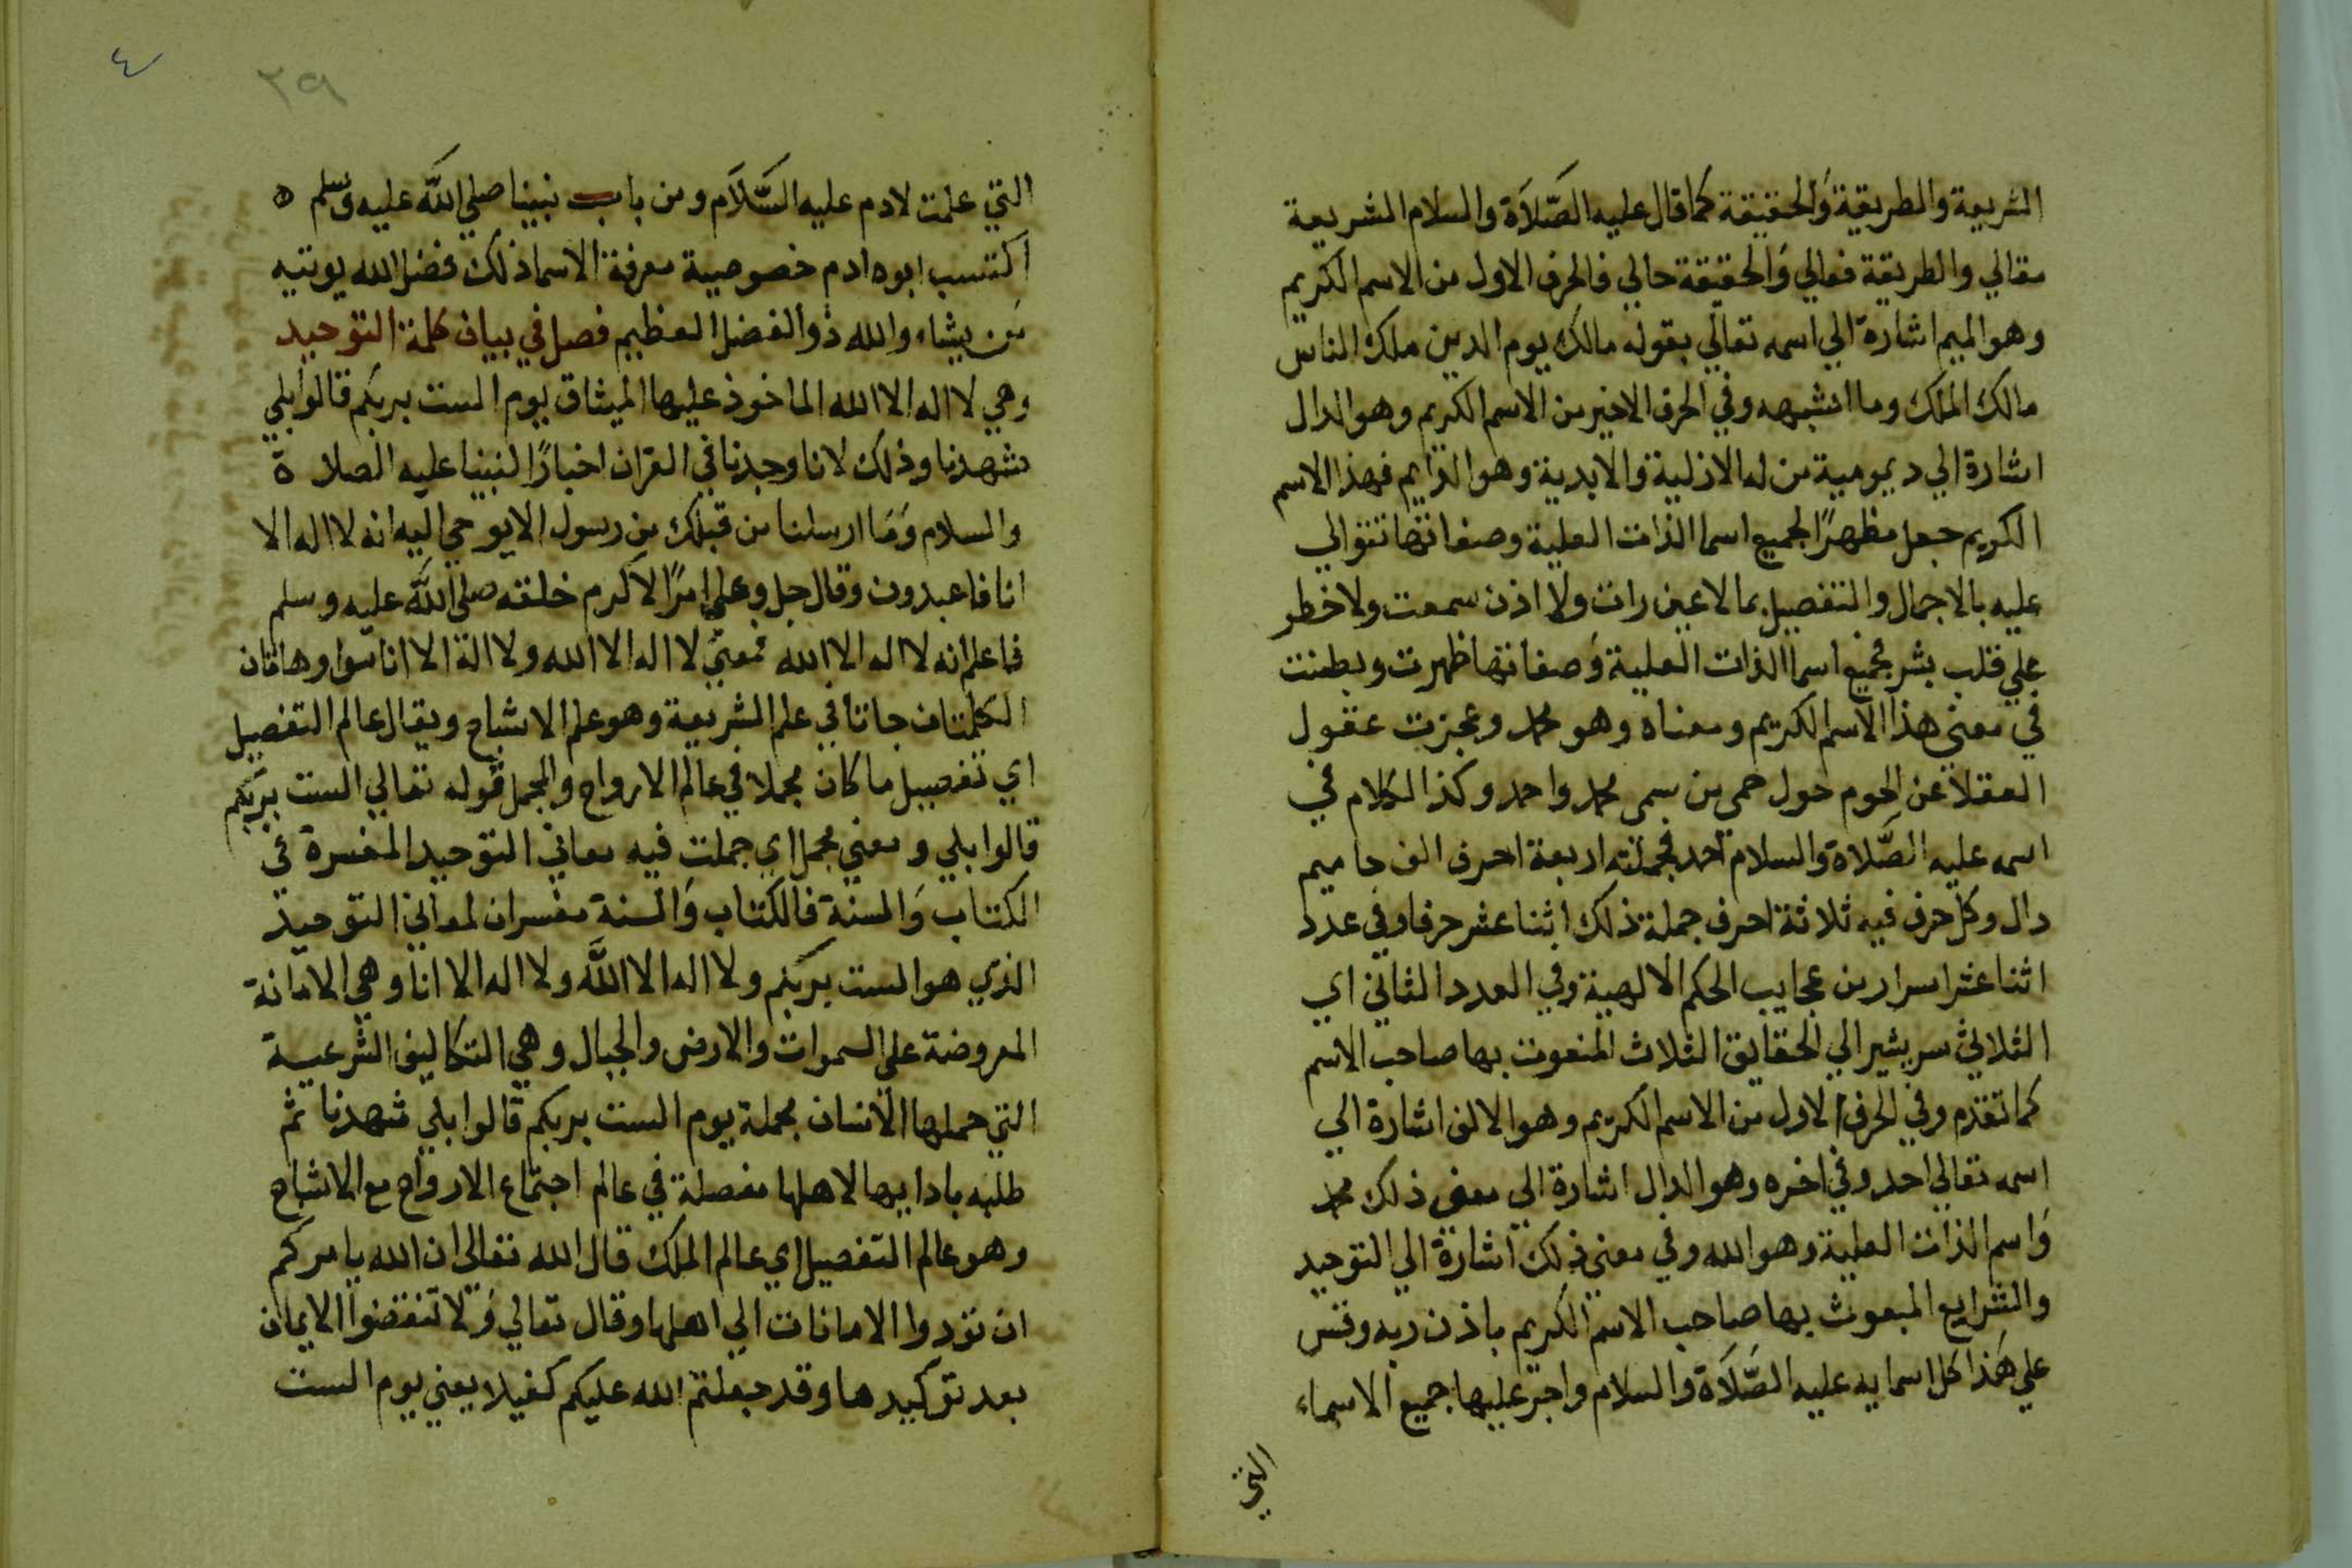 الشريعة والطريقة وَالحقيقة كما قال عليه الصَّلاَة والسلام الشريعة
مقالي والطريقة فعالي وَالحقيقة حالي فالحرف الاول من الاسم الكريم
وهو الميم اشارة الي اسمه تعالي بقوله مالك يوم الدين ملك الناس
مالك الملك وما اشبهه وفي الحرف الاخير من الاسم الكريم وهو الدال
اشارة الي ديمومية من له الازلية والابدية وهو الدايم فهذا الاسم
الكريم جعل مظهرًا لجميع اسما الذات العلية وصفاتها تتوالي
عليه بالاجمال والتفصيل بما لا عين رات ولا اذن سمعت ولا خطر
علي قلب بشر فجميع اسما الذات العلية وَصفاتها ظهرت وبطنت
في معني هذا الاسم الكريم ومعناه وهو محمد وعجزت عقول
العقلا عن الحوم حول حمى من سمى محمد واحمد وكذا الكلام في
اسمه عليه الصَّلاة والسلام احمد فجملته اربعة احرف الف حا ميم
دال وكل حرف فيه ثلاثة احرف جملة ذلك اثنا عشر حرفا وفي عدد
اثنا عشر اسرار من عجايب الحكم الالهية وفي العدد الثاني اي
الثلاثي سر يشير الي الحقايق الثلاث المنعوت بها صاحب الاسم
كما تقدم وفي الحرف الاول من الاسم الكريم وهو الالف اشارة الي
اسمه تعالي احد وفي اخره وهو الدال اشارة الي معني ذلك محمد
وَاسم الذات العلية وهو الله وفي معني ذلك اشارة الي التوحيد
والشرايع المبعوث بها صاحب الاسم الكريم باذن ربه وقس
علي هَذا كل اسمايه عليه الصَّلاَة والسلام واجر عليها جميع الاسماء
التي
٤
٢٩
التي علمت لادم عليه السَّلاَم ومن باب نبينا صلي اللَّه عليه وسلم ه
اكتسب ابوه ادم خصوصية معرفة الاسما ذلك فضل الله يوتيه
مَن يشاء والله ذوالفضل العظيم فصل في بيان كلمة التوحيد
وهي لا اله الا الله الماخوذ عليها الميثاق يوم الست بربكم قالوا بلي
شهدنا وذلك لانا وجدنا في القران اخبارًا لنبينا عليه الصلاة
والسلام وَمَا ارسلنا من قبلك من رسول الا يوحي اليه انه لا اله الا
انا فاعبدون وقال جل وعلي امرًا لاكرم خلقه صلي اللَّه عليه وسلم
فاعلم انه لا اله الا الله فمعني لا اله الا الله ولا اله الا انا سوا وهاتان
الكلمتان جاتا في علم الشريعة وهو علم الاشباح ويقال عالم التفصيل
اي تفصيل ما كان مجملا في عالم الارواح والمجمل قوله تعالي الست بربكم
قالوا بلي ومعني مجمل اي جملت فيه معاني التوحيد المفسرة في
الكتاب وَالسنة فالكتاب وَالسنة مفسران لمعاني التوحيد
الذي هو الست بربكم ولا اله الا اللَّه ولا اله الا انا وهي الامانة
المعروضة علي السموات والارض والجبال وهي التكاليف الشرعية
التي حملها الانسان مجملة يوم الست بربكم قالوا بلي شهدنا ثم
طلبه بادايها لاهلها مفصلة في عالم اجتماع الارواح مع الاشباح
وهو عالم التفصيل اي عالم الملك قال الله تعالي ان الله يامركم
ان تودوا الامانات الي اهلها وقال تعالي وَلا تنقضوا الايمان
بعد توكيدها وقد جعلتم الله عليكم كفيلا يعني يوم الست